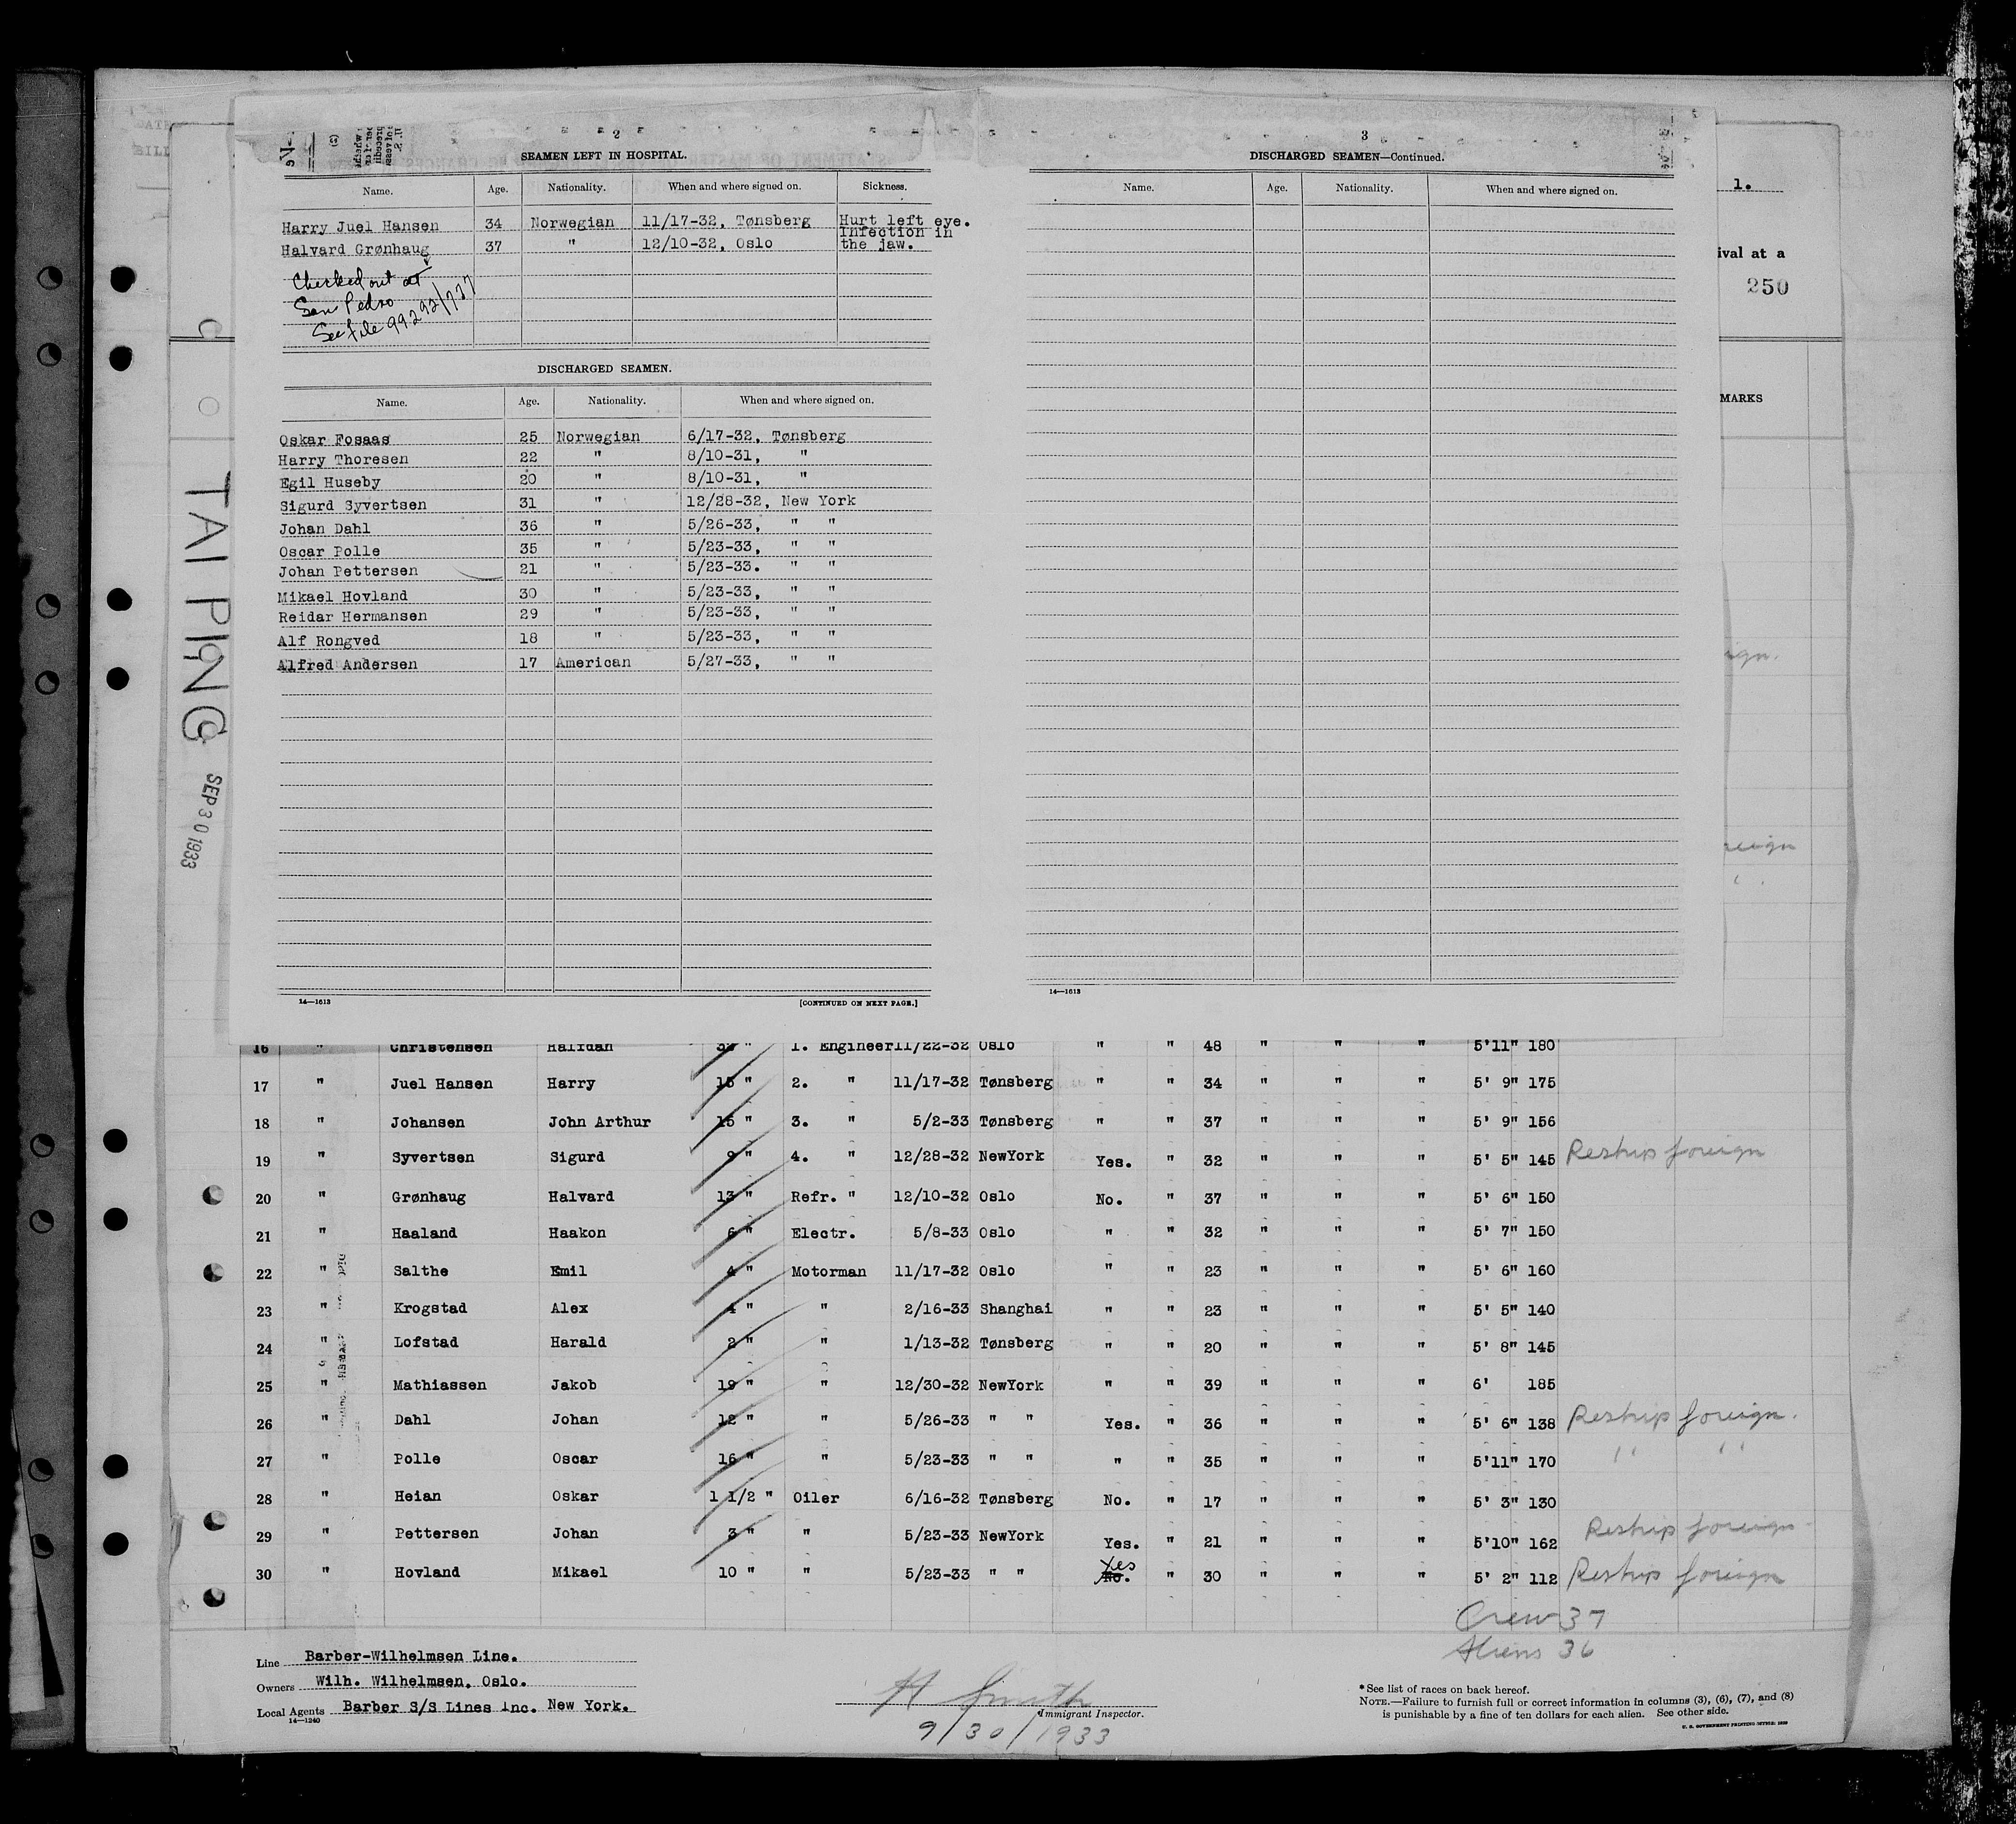 TAI PING
SEP 30 1933
2
SEAMEN LEFT IN HOSPITAL.
Name. Age. Nationality. When and where signed on. Sickness.
Harry Juel Hansen 34 Norwegian 11/17-32, Tønsberg Hurt left eye.
Halvard Grønhaug 37 " 12/10-32, Oslo Infection in the jaw.
Checked out at
San Pedro
See file 99292/737
DISCHARGED SEAMEN.
Name. Age. Nationality. When and where signed on.
Oskar Fosaas 25 Norwegian 6/17-32, Tønsberg
Harry Thoresen 22 " 8/10-31, "
Egil Huseby 20 " 8/10-31, "
Sigurd Syvertsen 31 " 12/28-32, New York
Johan Dahl 36 " 5/26-33, " "
Oscar Polle 35 " 5/23-33, " "
Johan Pettersen 21 " 5/23-33. " "
Mikael Hovland 30 " 5/23-33, " "
Reidar Hermansen 29 " 5/23-33, " "
Alf Rongved 18 " 5/23-33, " "
Alfred Andersen 17 American 5/27-33, " "
14—1613 [CONTINUED ON NEXT PAGE.]
3
DISCHARGED SEAMEN—Continued.
Name. Age. Nationality. When and where signed on.
14—1613
1.
ival at a
250
MARKS
ign.
reign
16 " Christensen Halfdan " 1. Engineer 11/22-32 Oslo " " 48 " " " 5'11" 180
17 " Juel Hansen Harry 15 " 2. " 11/17-32 Tønsberg " " 34 " " " 5' 9" 175
18 " Johansen John Arthur 15 " 3. " 5/2-33 Tønsberg " " 37 " " " 5' 9" 156
19 " Syvertsen Sigurd 9 " 4. " 12/28-32 NewYork Yes. " 32 " " " 5' 5" 145 Reship foreign
20 " Grønhaug Halvard 13 " Refr. " 12/10-32 Oslo No. " 37 " " " 5' 6" 150
21 " Haaland Haakon 6 " Electr. 5/8-33 Oslo " " 32 " " " 5' 7" 150
22 " Salthe Emil 4 " Motorman 11/17-32 Oslo " " 23 " " " 5' 6" 160
23 " Krogstad Alex 4 " " 2/16-33 Shanghai " " 23 " " " 5' 5" 140
24 " Lofstad Harald 2 " " 1/13-32 Tønsberg " " 20 " " " 5' 8" 145
25 " Mathiassen Jakob 19 " " 12/30-32 NewYork " " 39 " " " 6' 185
26 " Dahl Johan 12 " " 5/26-33 " " Yes. " 36 " " " 5' 6" 138 Reship foreign.
27 " Polle Oscar 16 " " 5/23-33 " " " " 35 " " " 5'11" 170 " "
28 " Heian Oskar 1 1/2 " Oiler 6/16-32 Tønsberg No. " 17 " " " 5' 3" 130
29 " Pettersen Johan 3 " " 5/23-33 NewYork Yes. " 21 " " " 5'10" 162 Reship foreign
30 " Hovland Mikael 10 " " 5/23-33 " " No. Yes " 30 " " " 5' 2" 112 Reship foreign
Crew 37
Aliens 36
Line Barber-Wilhelmsen Line.
Owners Wilh. Wilhelmsen, Oslo.
Local Agents Barber S/S Lines Inc. New York.
14—1240
H Smith
Immigrant Inspector.
9/30/1933
*See list of races on back hereof.
NOTE.—Failure to furnish full or correct information in columns (3), (6), (7), and (8)
is punishable by a fine of ten dollars for each alien. See other side.
U. S. GOVERNMENT PRINTING OFFICE: